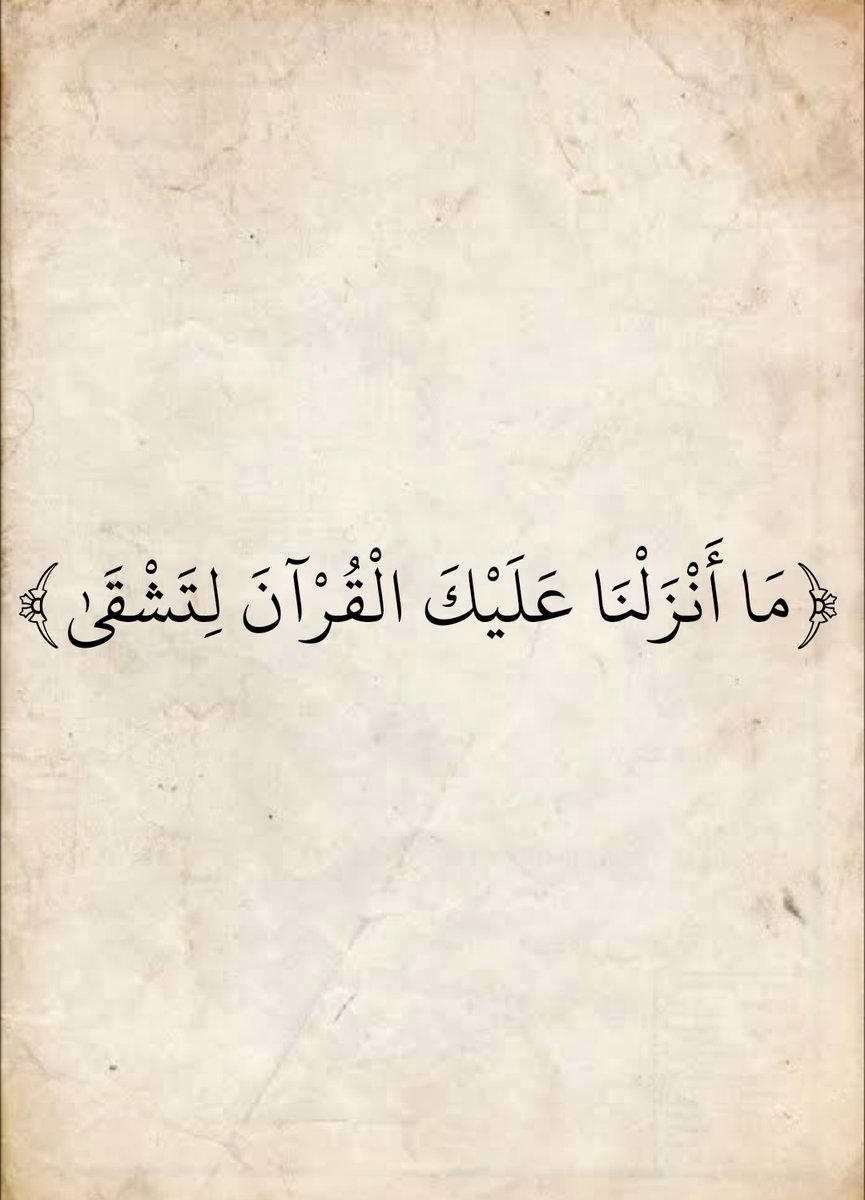 ﴿مَا أَنْزَلْنَا عَلَيْكَ الْقُرْآنَ لِتَشْقَىٰ﴾